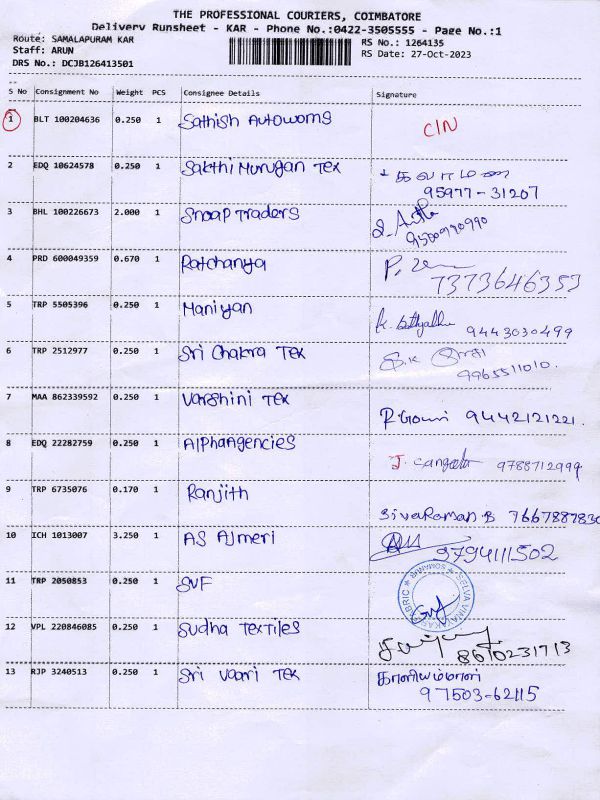 THE PROFESSIONAL COURIERS, COIMBATORE
Delivery Runsheet - KAR - Phone No.:0422-3505555 - Page No.:1
Route: SAMALAPURAM KAR
Staff: ARUN
DRS No.: DCJB126413501
RS No.: 1264135
RS Date: 27-Oct-2023
S No Consignment No Weight PCS Consignee Details Signature
1 BLT 100204636 0.250 1 Sathish Autowoms CIN
2 EDQ 10624578 0.250 1 Sakthi Murugan Tex
95977-31207
3 BHL 100226673 2.000 1 Snoap Traders
9500990990
4 PRD 600049359 0.670 1 Ratchanya
7373646353
5 TRP 5505396 0.250 1 Maniyan
9443030499
6 TRP 2512977 0.250 1 Sri Chakra Tex
9965511010.
7 MAA 862339592 0.250 1 Varshini Tex R Gowri 9442121221.
8 EDQ 22282759 0.250 1 AlphaAgencies J. Sangeeta 9788712999
9 TRP 6735076 0.170 1 Ranjith
SivaRaman B 7667887830
10 ICH 1013007 3.250 1 AS AJmeri
9794111502
11 TRP 2050853 0.250 1 SVF
SELVA VINAYAKA FABRIC SOMANUR
12 VPL 220846085 0.250 1 Sudha Textiles
8610231713
13 RJP 3240513 0.250 1 Sri Vaari Tex காளியம்மாள்
97503-62115